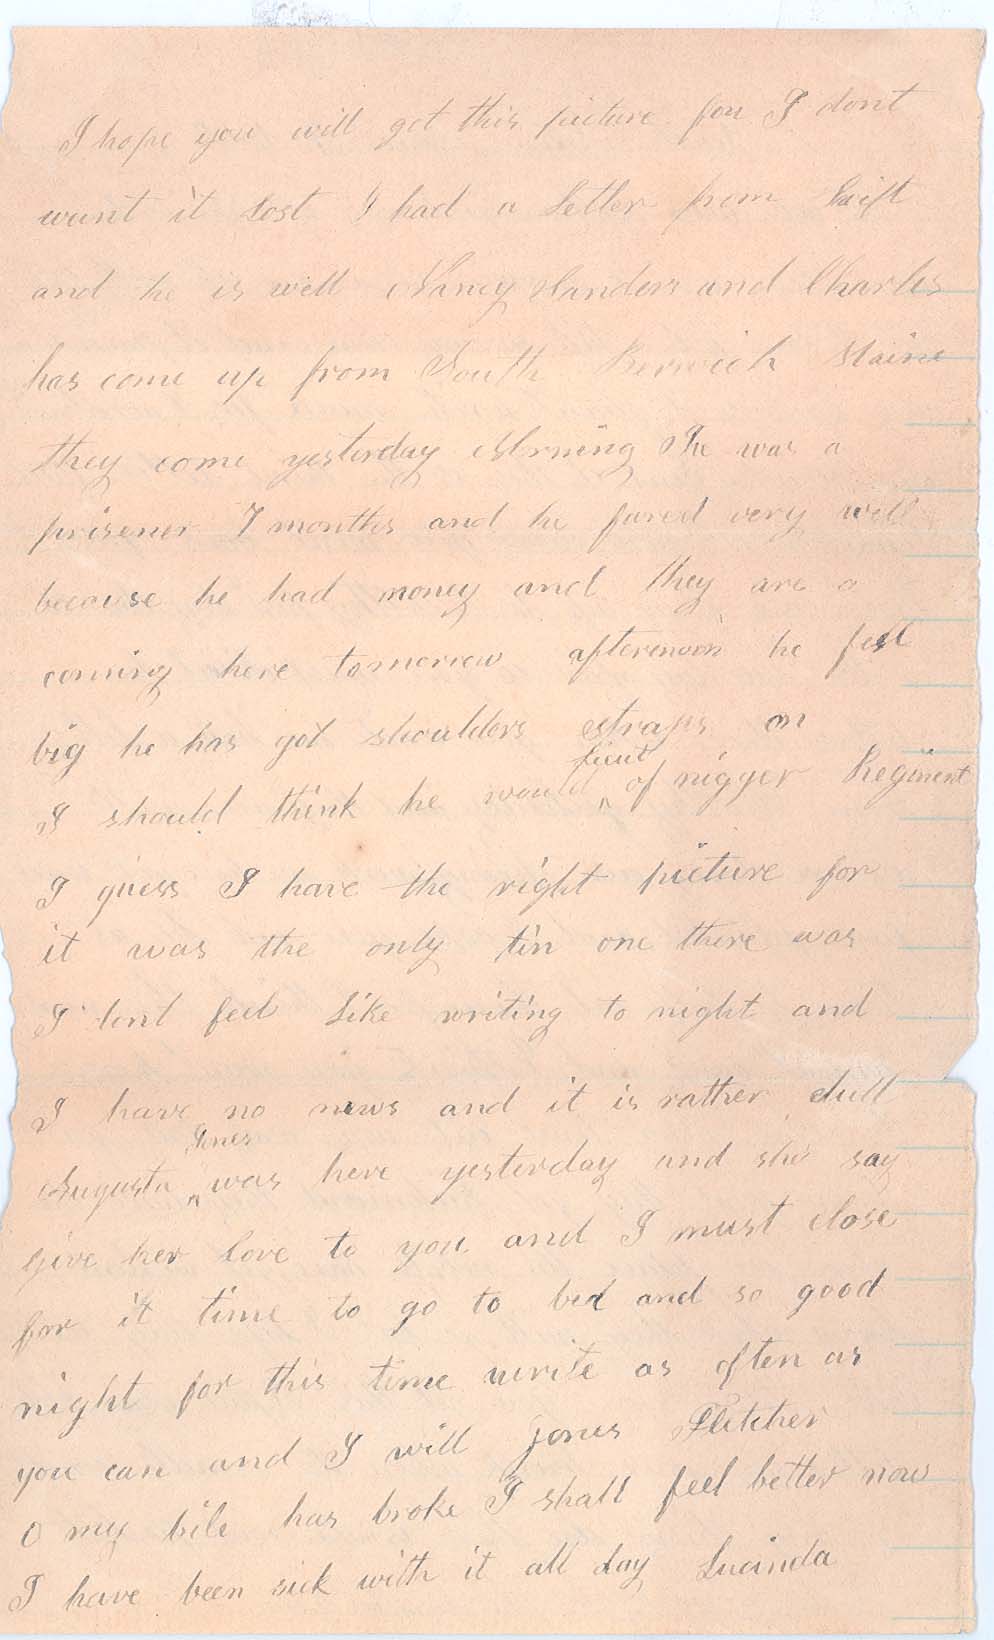 I hope you will get this picture for I dont
want it Lost I had a Letter from Swift
and he is well Nancy Sanders and Charles
has come up from South Berwick Maine
they come yesterday Morning He was a
prisener 7 months and he fared very well
because he had money and they are a
coming here tomorrow afternoon he feel
big he has got shoulders straps on
lieut
I should think he would ^ of nigger Regiment
I guess I have the right picture for
it was the only tin one there was
I dont feel Like writing to night and
I have no news and it is rather dull
Jones
Augusta ^ was here yesterday and she say
give her Love to you and I must close
for it time to go to bed and so good
night for this time write as often as
you can and I will Jones Fletcher
O my bile has broke I shall feel better now
I have been sick with it all day Lucinda